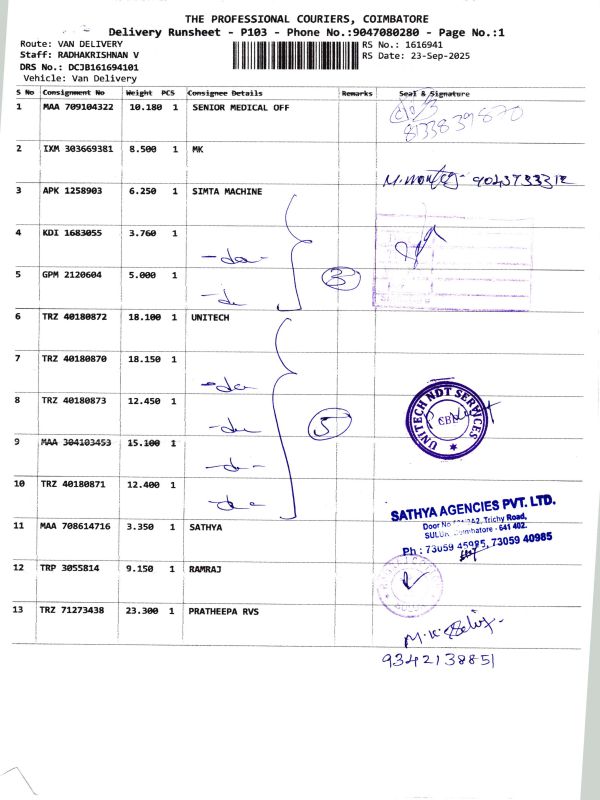 THE PROFESSIONAL COURIERS, COIMBATORE
Delivery Runsheet - P103 - Phone No.:9047080280 - Page No.:1
Route: VAN DELIVERY
RS No.: 1616941
Staff: RADHAKRISHNAN V
RS Date: 23-Sep-2025
DRS No.: DCJB161694101
Vehicle: Van Delivery
S No Consignment No Weight PCS Consignee Details Remarks Seal & Signature
1 MAA 709104322 10.180 1 SENIOR MEDICAL OFF
8133839870
2 IXM 303669381 8.500 1 MK
3 APK 1258903 6.250 1 SIMTA MACHINE
4 KDI 1683055 3.760 1
-do-
5 GPM 2120604 5.000 1
3
-do
6 TRZ 40180872 18.100 1 UNITECH
7 TRZ 40180870 18.150 1
-do
8 TRZ 40180873 12.450 1
UNITECH NDT SERVICES
CBE
-do
5
9 MAA 304103453 15.100 1
-do-
10 TRZ 40180871 12.400 1
-do
SATHYA AGENCIES PVT. LTD.
Door No Trichy Road,
- 641 402.
Ph : 73059 45985, 73059 40985
11 MAA 708614716 3.350 1 SATHYA
12 TRP 3055814 9.150 1 RAMRAJ
13 TRZ 71273438 23.300 1 PRATHEEPA RVS
9342138851